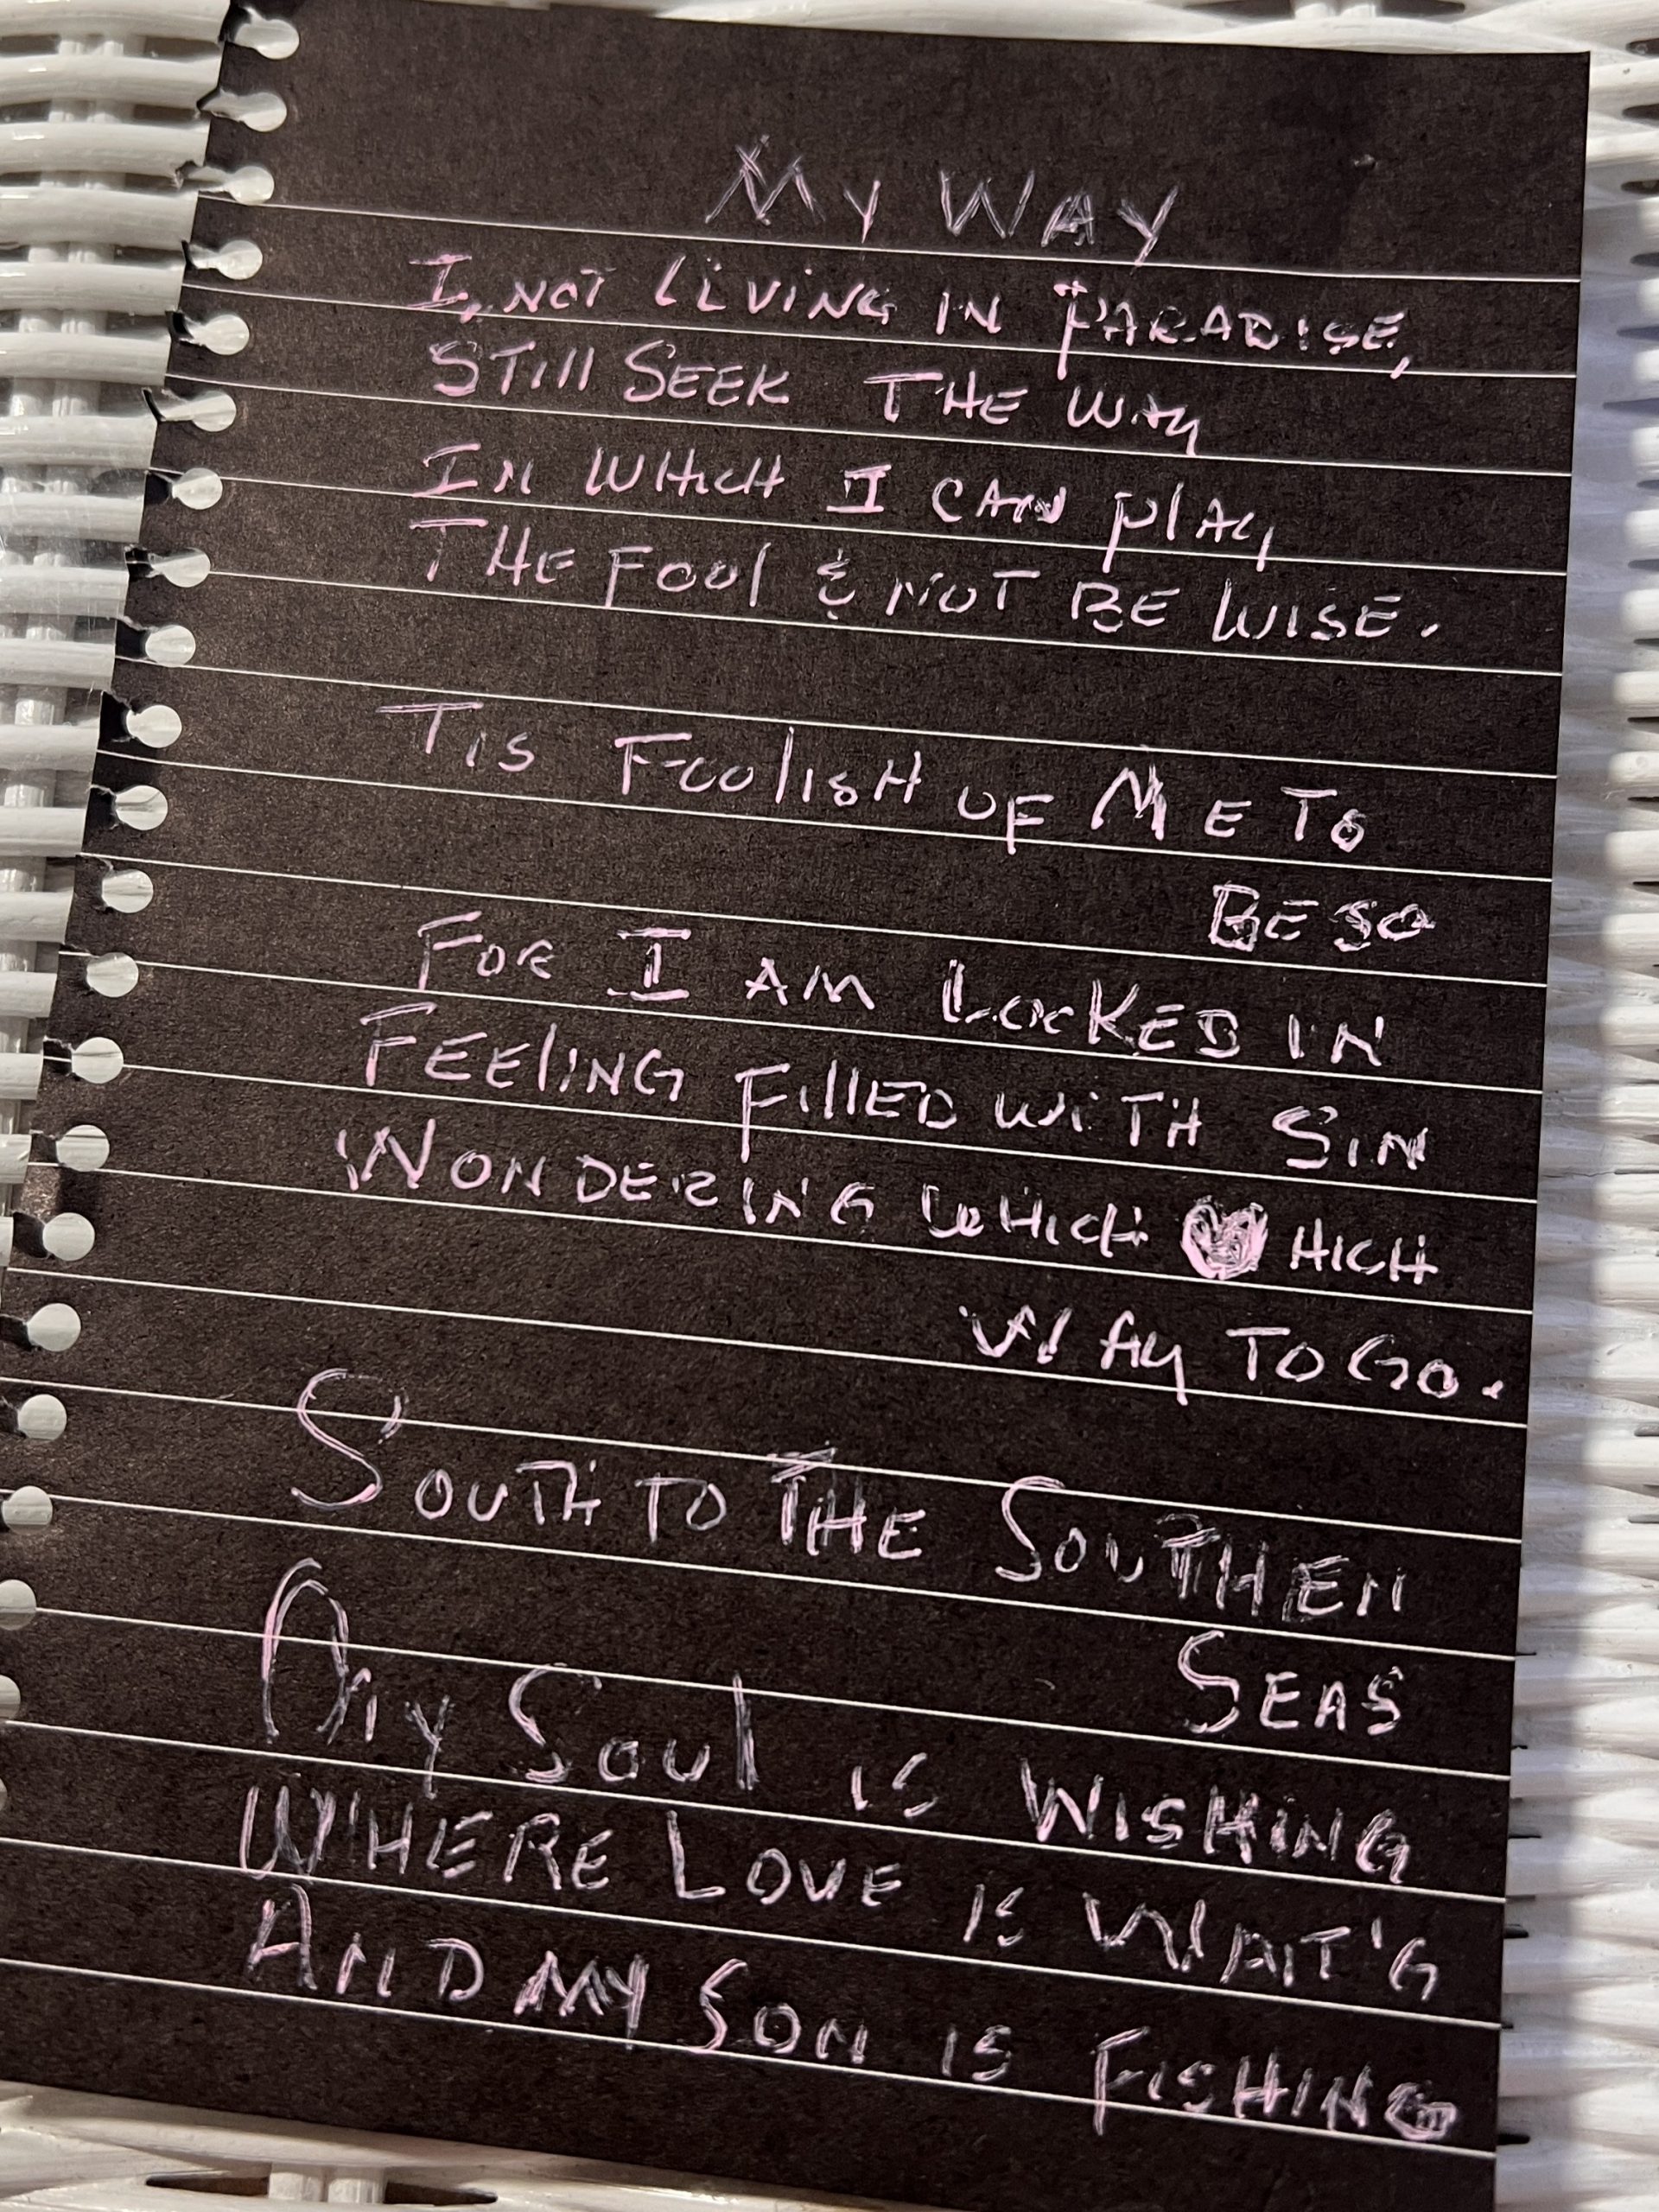 MY WAY
I, NOT LIVING IN PARADISE,
STILL SEEK THE WAY
IN WHICH I CAN PLAY
THE FOOL & NOT BE WISE.
TIS FOOLISH OF ME TO
BE SO
FOR I AM LOCKED IN
FEELING FILLED WITH SIN
WONDERING WHICH HICH
WAY TO GO.
SOUTH TO THE SOUTHEN
SEAS
MY SOUL IS WISHING
WHERE LOVE IS WAIT'G
AND MY SON IS FISHING